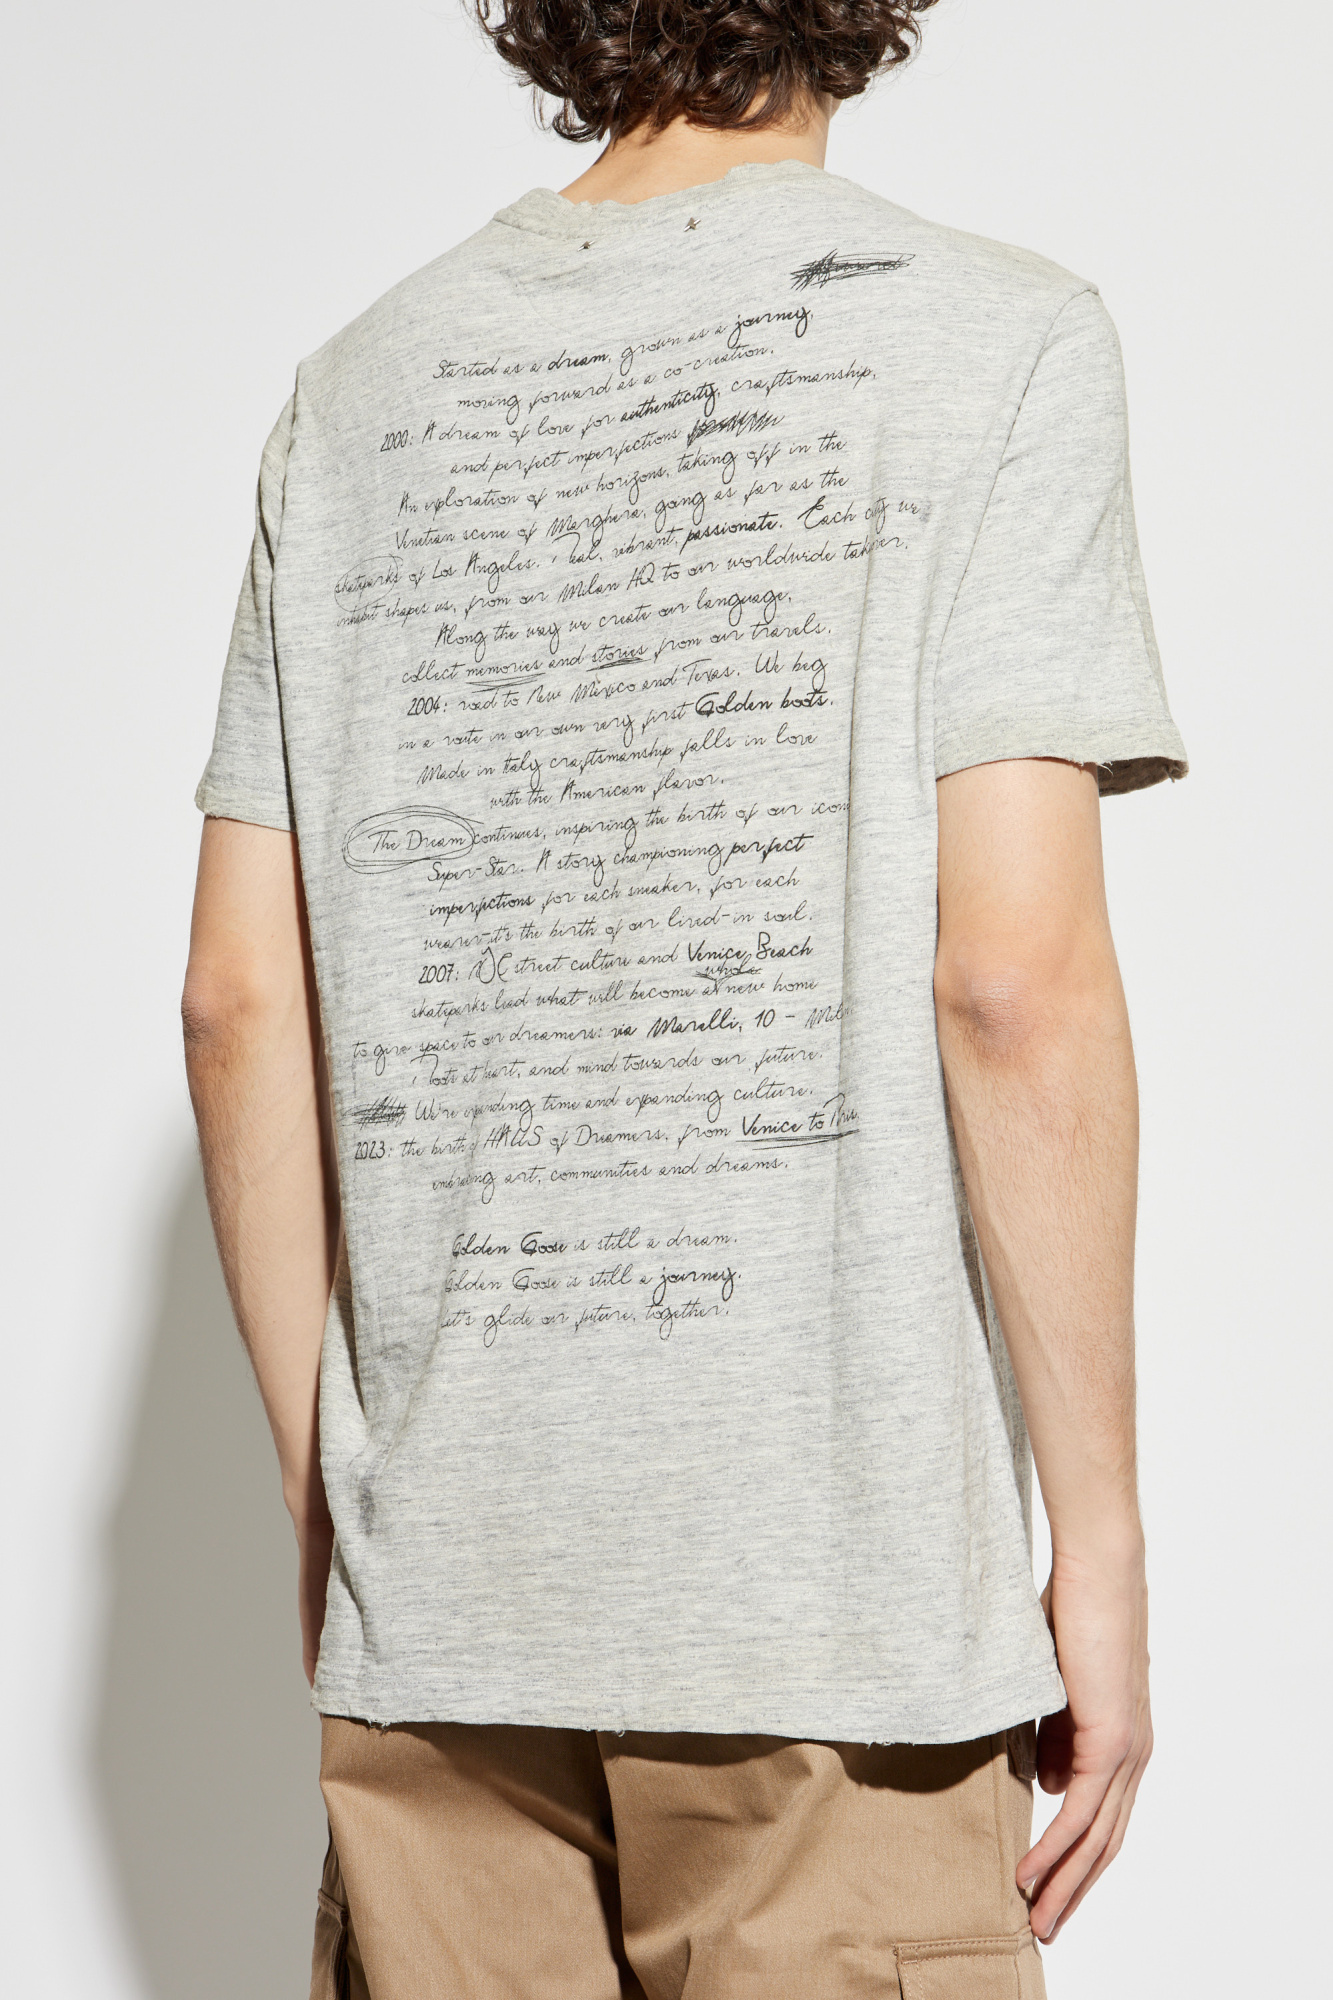 Started as a dream, grown as a journey,
moving forward as a co-creation.
2000: A dream of love for authenticity, craftsmanship,
and perfect imperfections
An exploration of new horizons, taking off in the
Venetian scene of Marghera, going as far as the
skateparks of Los Angeles. Real, vibrant, passionate. Each city we
inhabit shapes us, from our Milan HQ to our worldwide
Along the way we create our language,
collect memories and stories from our travels.
2004: road to New Mexico and Texas. We beg
in a route in our own very first Golden boots.
Made in Italy craftsmanship falls in love
with the American flavor.
The Dream continues, inspiring the birth of our icon
Super-Star. A story championing perfect
imperfections for each sneaker, for each
wearer-it's the birth of our lived-in soul.
2007: street culture and Venice Beach
whole
skateparks lead what will become a new home
to give space to our dreamers: via Marelli, 10 - Milan
Roots at heart, and mind towards our future.
We're expanding time and expanding culture.
2023: the birth of HAUS of Dreamers, from Venice to Paris,
embracing art, communities and dreams.
Golden Goose is still a dream.
Golden Goose is still a journey.
Let's glide our future, together.